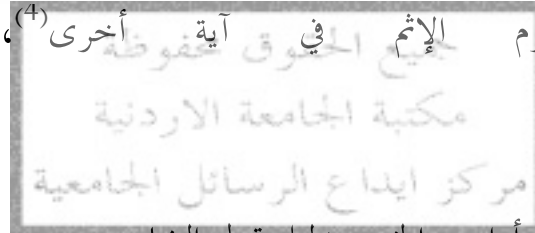 الإثم في آية أخرى(4)،
جميع الحقوق محفوظة
مكتبة الجامعة الاردنية
مركز ايداع الرسائل الجامعية